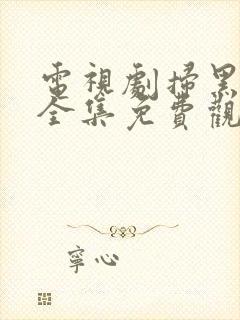 電視劇掃黑
全集免費觀
寧心